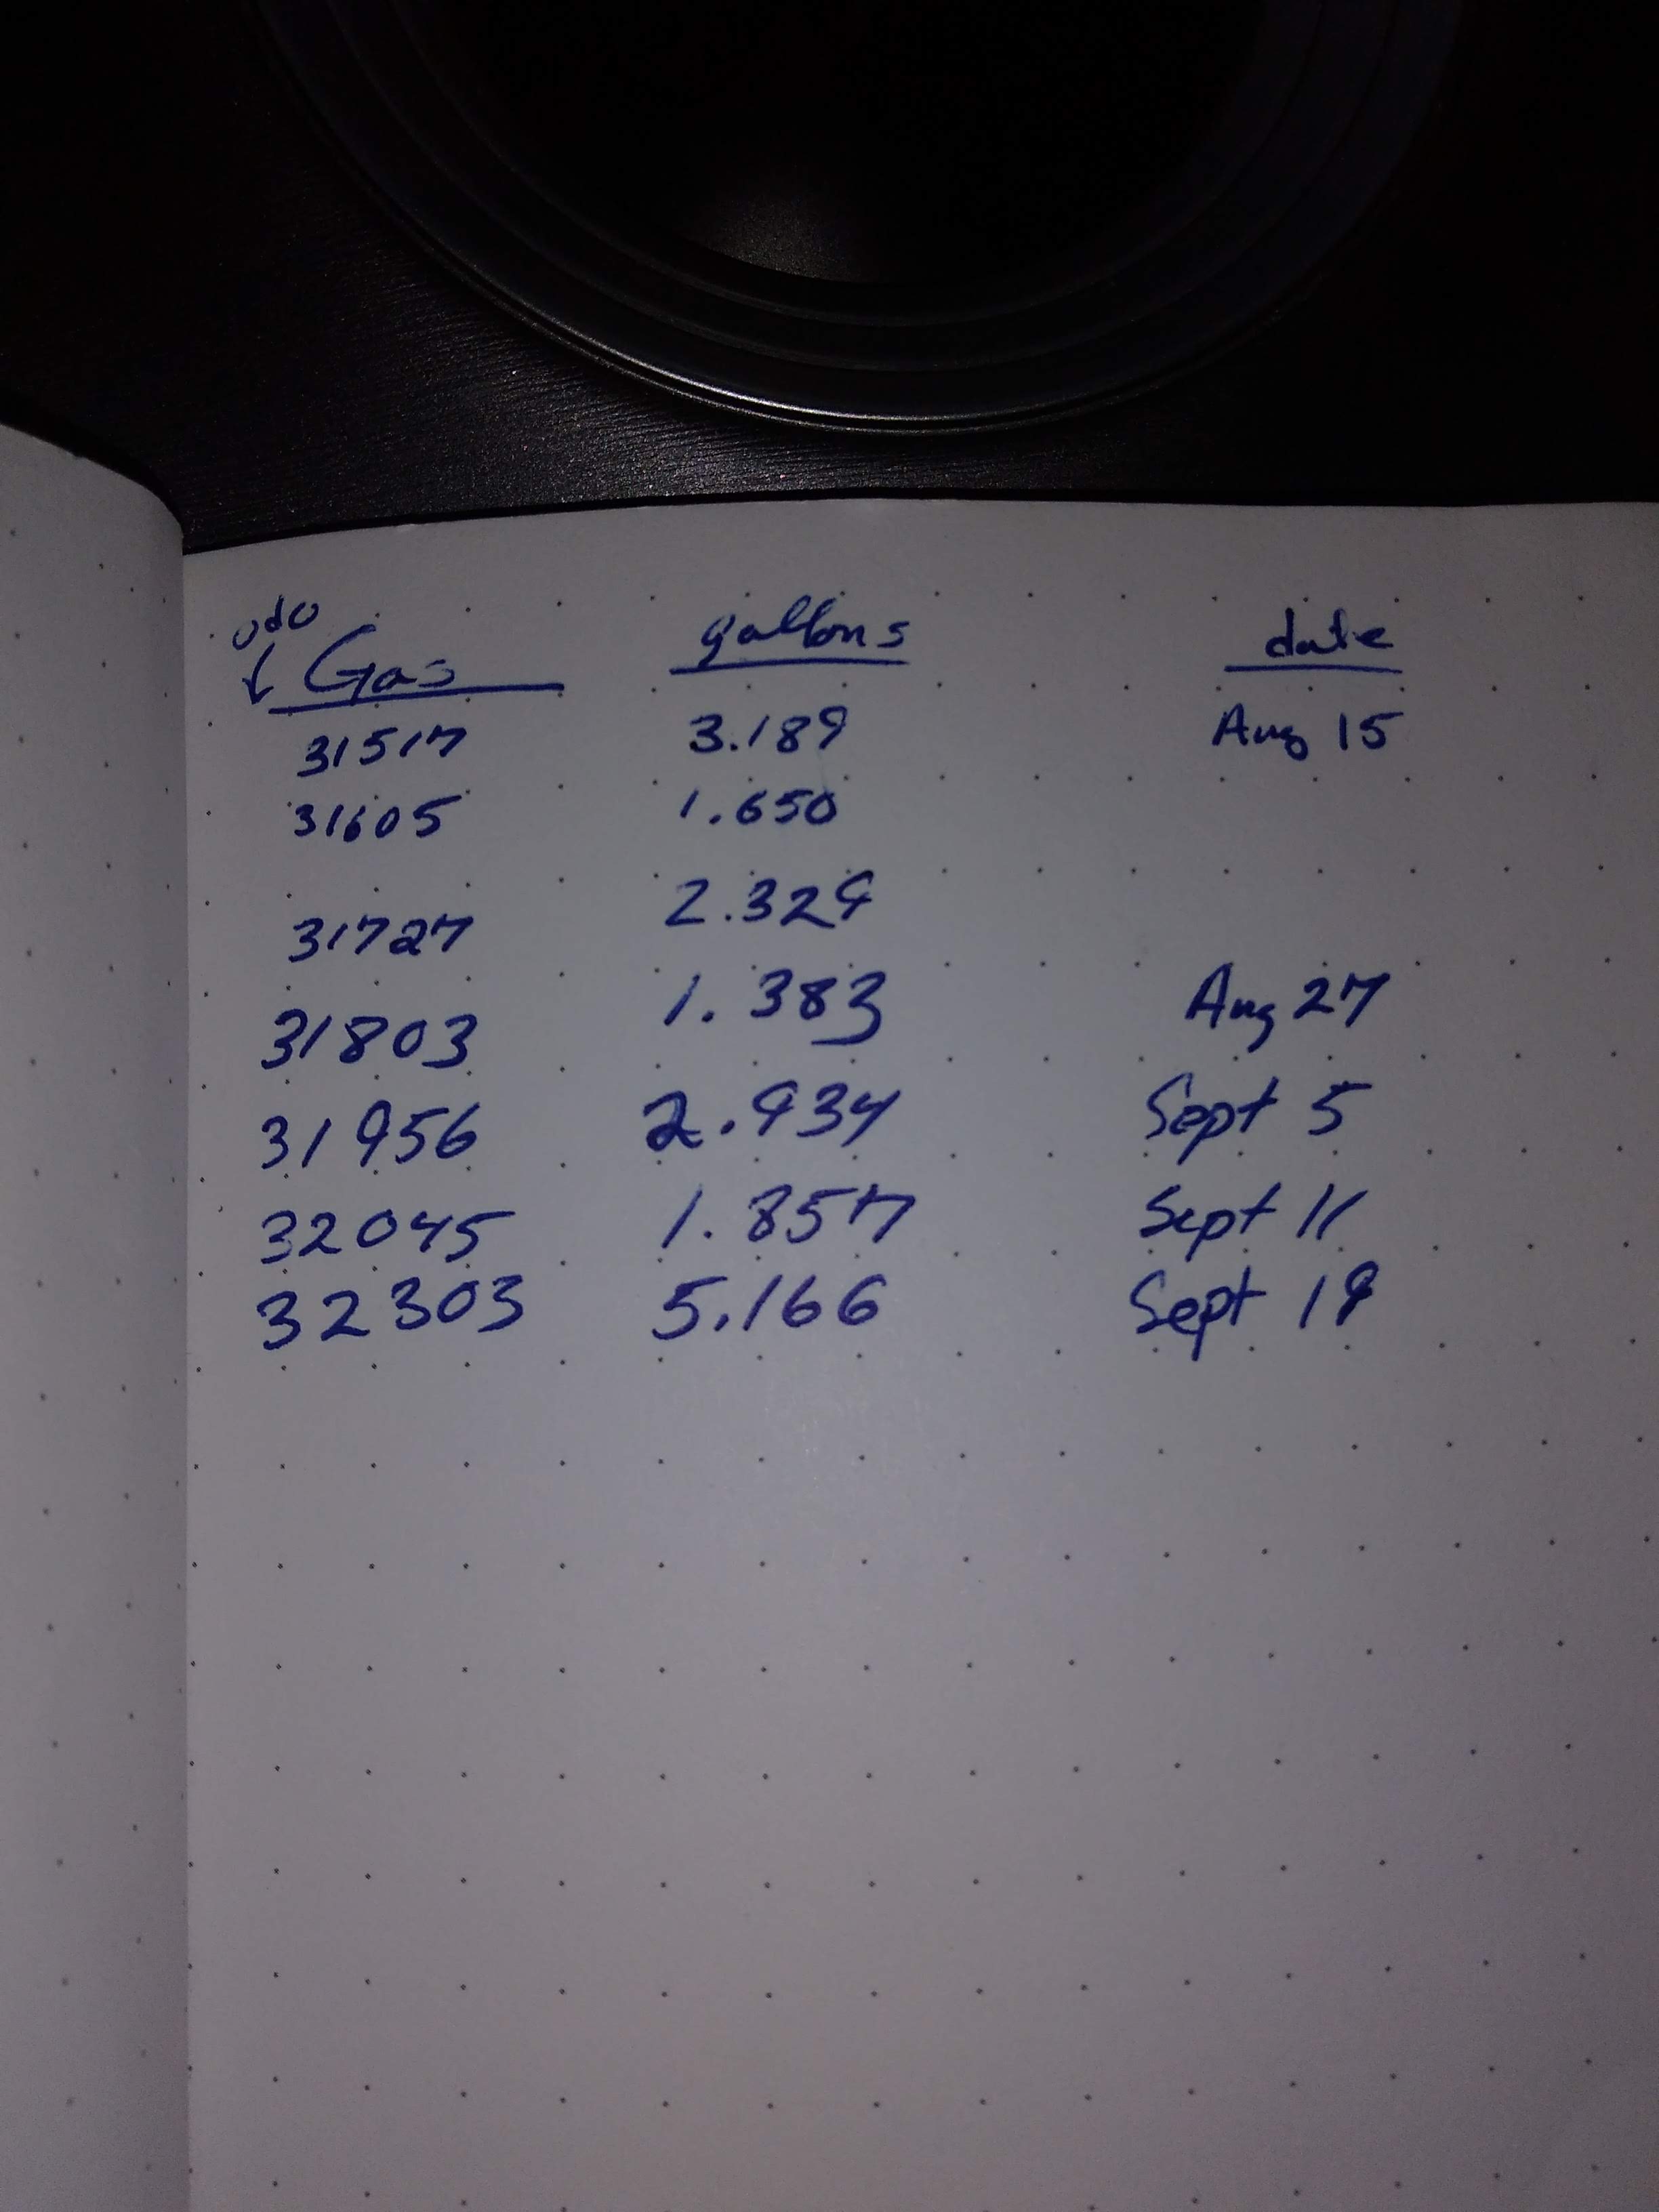 odo
↓ Gas gallons date
31517 3.189 Aug 15
31605 1.650
31727 2.329
31803 1.383 Aug 27
31956 2.934 Sept 5
32045 1.857 Sept 11
32303 5.166 Sept 19